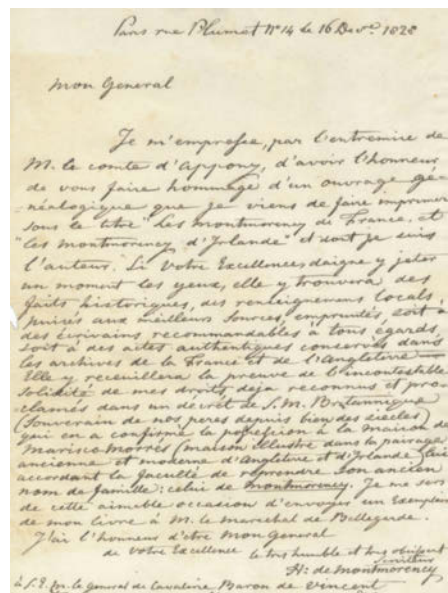 Paris rue Plumet N° 14 le 16 1828
Mon General
Je m'empresse, par l'entremise de
M. le comte d'Appony, d'avoir l'honneur
de vous faire hommage d'un ouvrage gé-
néalogique que je viens de faire imprimer
sous le titre "Les Montmorency de France, et
les Montmorency d'Irlande" et dont je suis
l'auteur. Si Votre Excellence daigne y jeter
un moment les yeux, elle y trouvera des
faits historiques, des renseignemens locals,
puisés aux meilleurs sources, empruntés, soit à
des écrivains recommandables à tous égards,
soit à des actes authentiques conservés dans
les archives de la France et de l'Angleterre
Elle y receuillera la preuve de l'incontestable
solidité de mes droits déja reconnus et pro-
clamés dans un décret de S. M. Britannique
(Souverain de nos peres depuis bien des siecles)
qui en a confirmé la possession à la maison de
Marisco Morrès (maison illustre dans la pairage
ancienne et moderne d'Angleterre et d'Irlande) lui
accordant la faculté de reprendre son ancien
nom de famille: celui de Montmorency. Je me sers
de cette aimable occasion d'envoyer un Exemplaire
de mon livre à M. le marechal de Bellegarde.
J'ai l'honneur d'être Mon General
de votre Excellence le tres humble et tres obéissant
serviteur
H: de Montmorency
à S. E. M. le General de Cavalerie Baron de Vincent